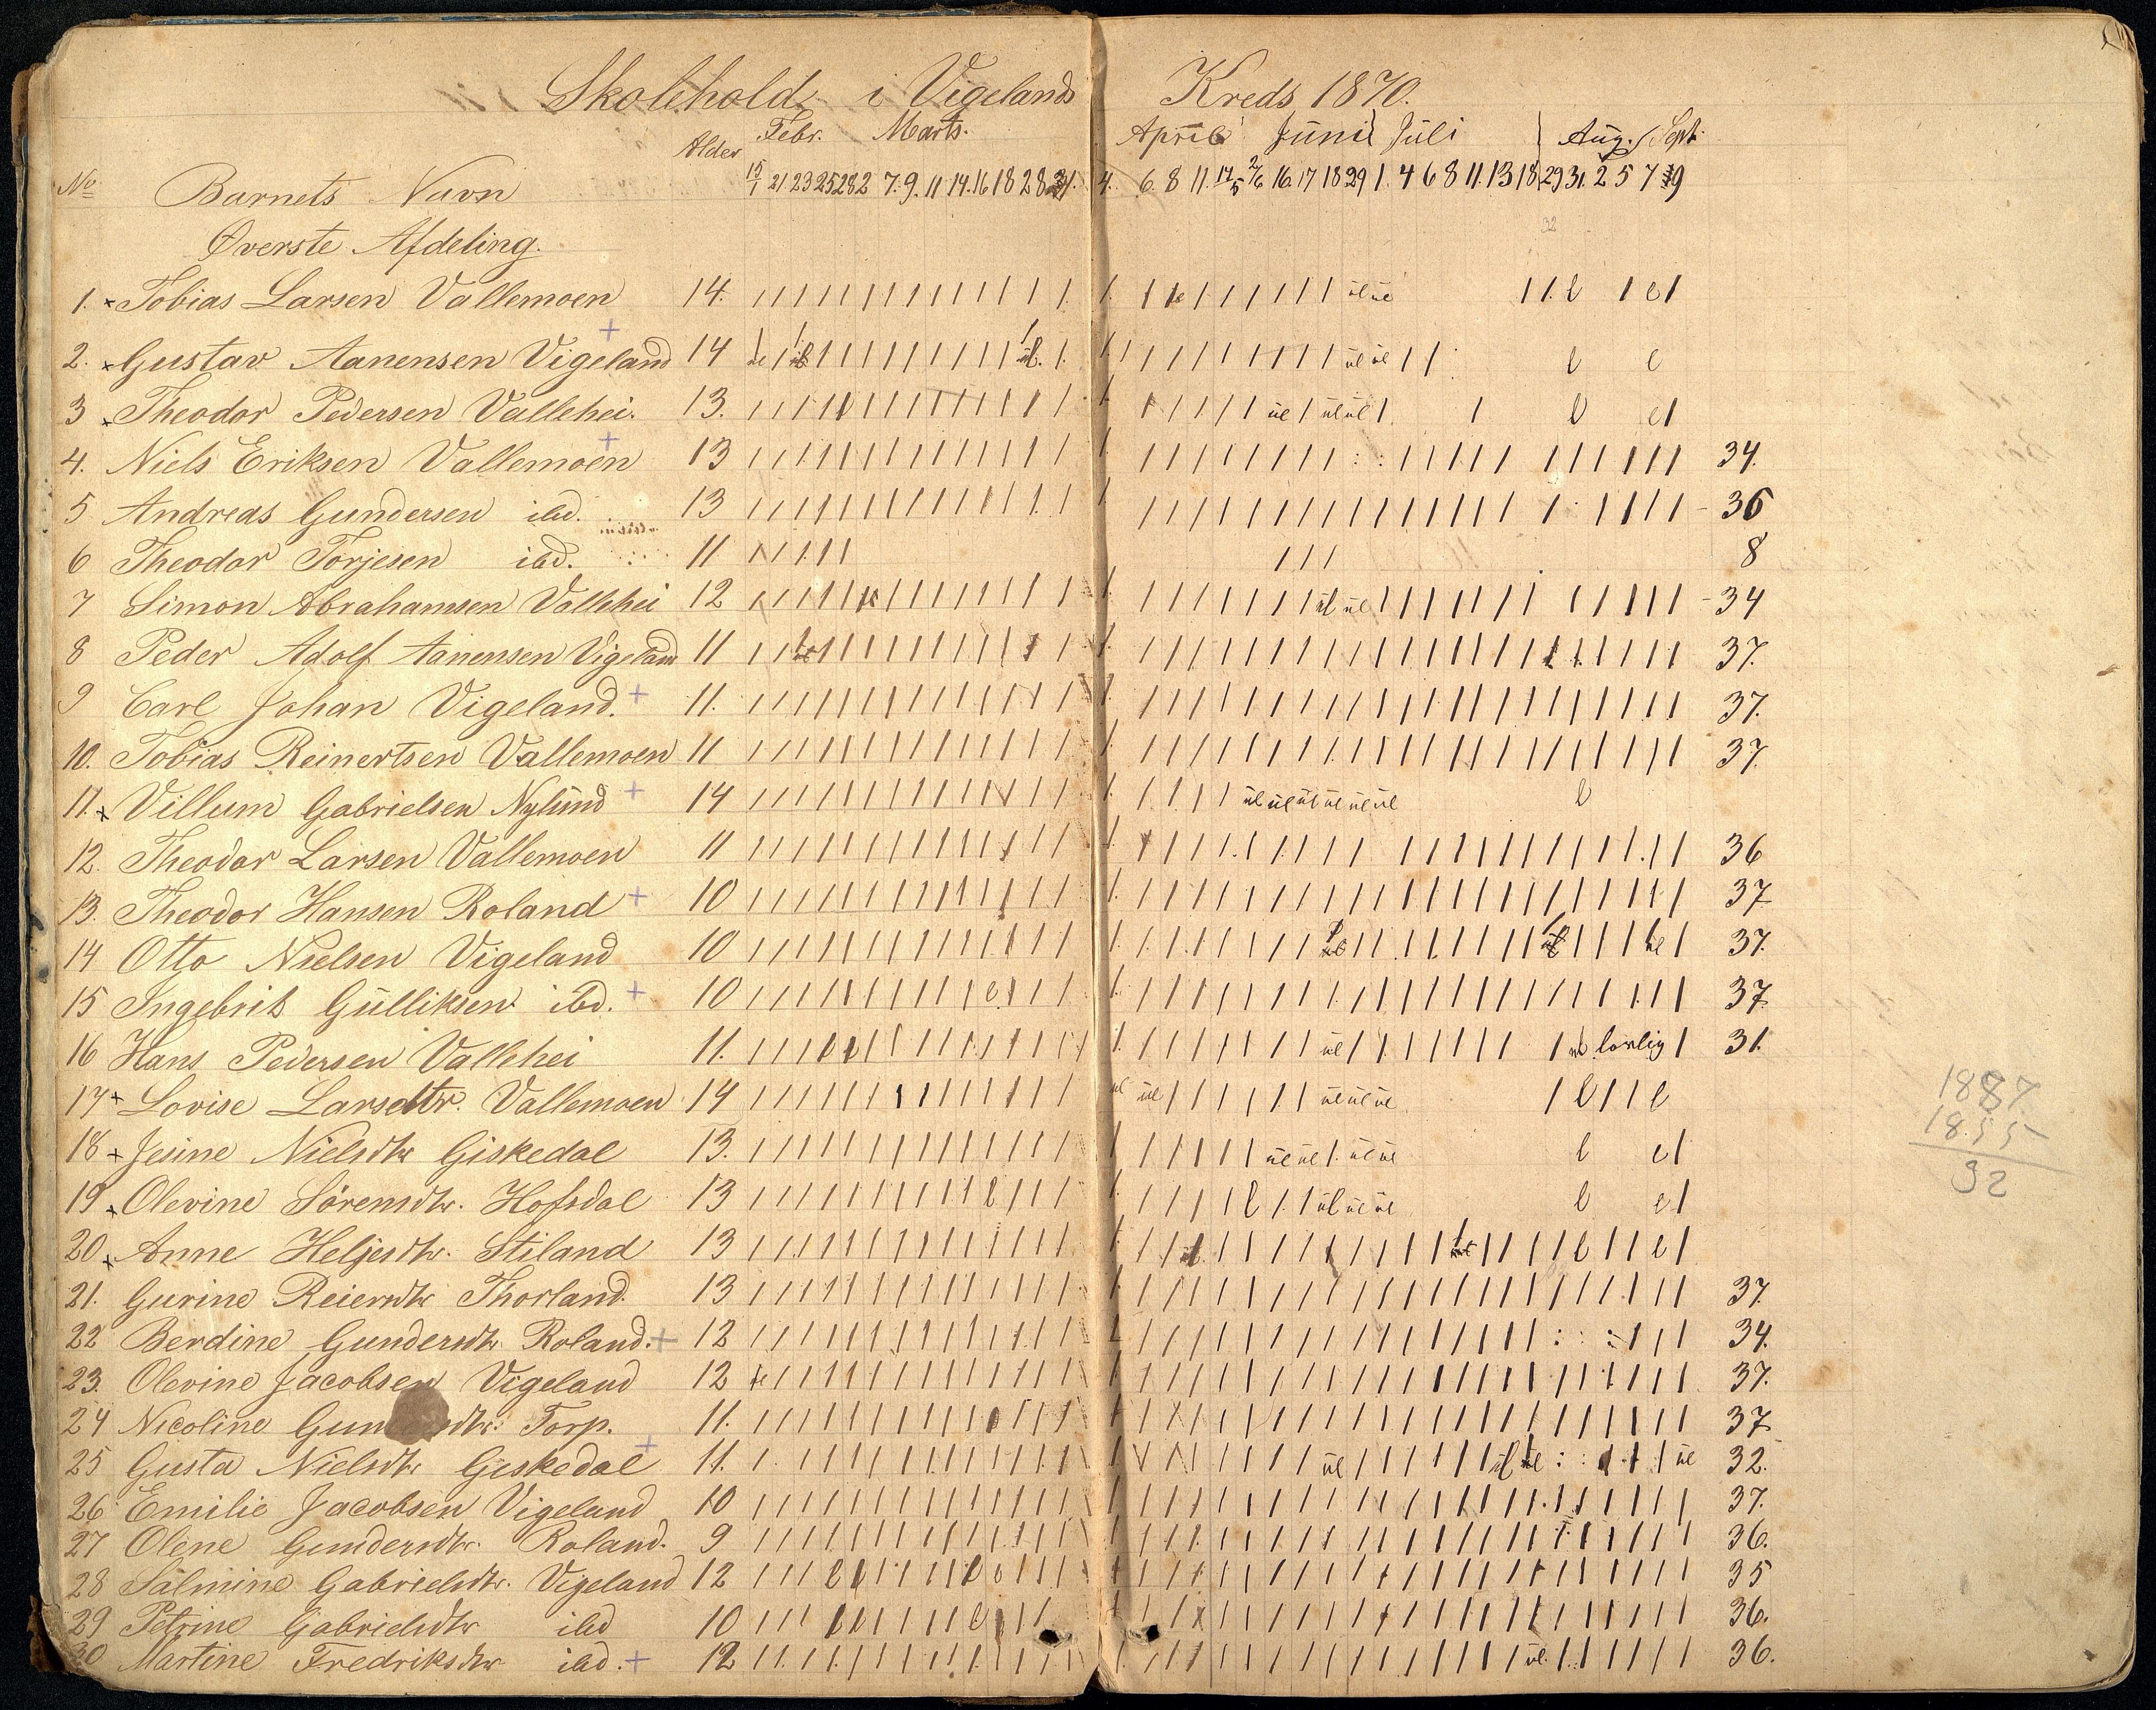 Skolehold i Vigelands Kreds 1870.
Alder Febr. Marts. April Juni Juli Aug. Sept.
No Barnets Navn 15/1 21 23 25 28 2 7. 9. 11 14. 16 18 28 31. 4. 6. 8 11. 14/5 2/6 16. 17 18 29 1. 4 6 8 11. 13 18 29 31. 2 5 7 9
Øverste Afdeling. 32
1. × Tobias Larsen Vallemoen 14.
2. × Gustav Aanensen Vigeland 14
3 × Theodor Pedersen Vallehei. 13.
4. Niels Eriksen Vallemoen 13 34.
5 Andreas Gundersen ibd. 13 36
6 Theodor Torjesen ibd. 11 8
7 Simon Abrahamsen Vallehei 12 34
8 Peder Adolf Aanensen Vigeland 11 37.
9 Carl Johan Vigeland. + 11. 37.
10. Tobias Reinertsen Vallemoen 11 37.
11. × Villum Gabrielsen Nylund + 14
12. Theodor Larsen Vallemoen 11 36
13. Theodor Hansen Roland + 10 37
14 Otto Nielsen Vigeland 10 37.
15 Ingebrit Gulliksen ibd. + 10 37.
16 Hans Pedersen Vallehei 11. lovlig 31.
17 × Lovise Larsdtr. Vallemoen 14
18 × Jesine Nielsdtr Giskedal 13.
19 × Olevine Sörensdtr. Hofsdal 13
20 × Anne Heljesdtr. Stiland 13
21. Gurine Reiersdtr Thorland. 13 37.
22 Berdine Gundersdtr Roland. + 12 34.
23. Olevine Jacobsen Vigeland 12 37.
24 Nicoline Torp. 11. 37
25 Gusta Nielsdtr Giskedal + 11. 32.
26 Emilie Jacobsen Vigeland 10 37.
27 Olene Gundersdtr. Roland. 9 36.
28 Salmine Gabrielsdtr. Vigeland 12 35
29 Petrine Gabrielsdtr ibd 10 36.
30 Martine Fredriksdtr ibd. + 12 36.
1887
1855
32